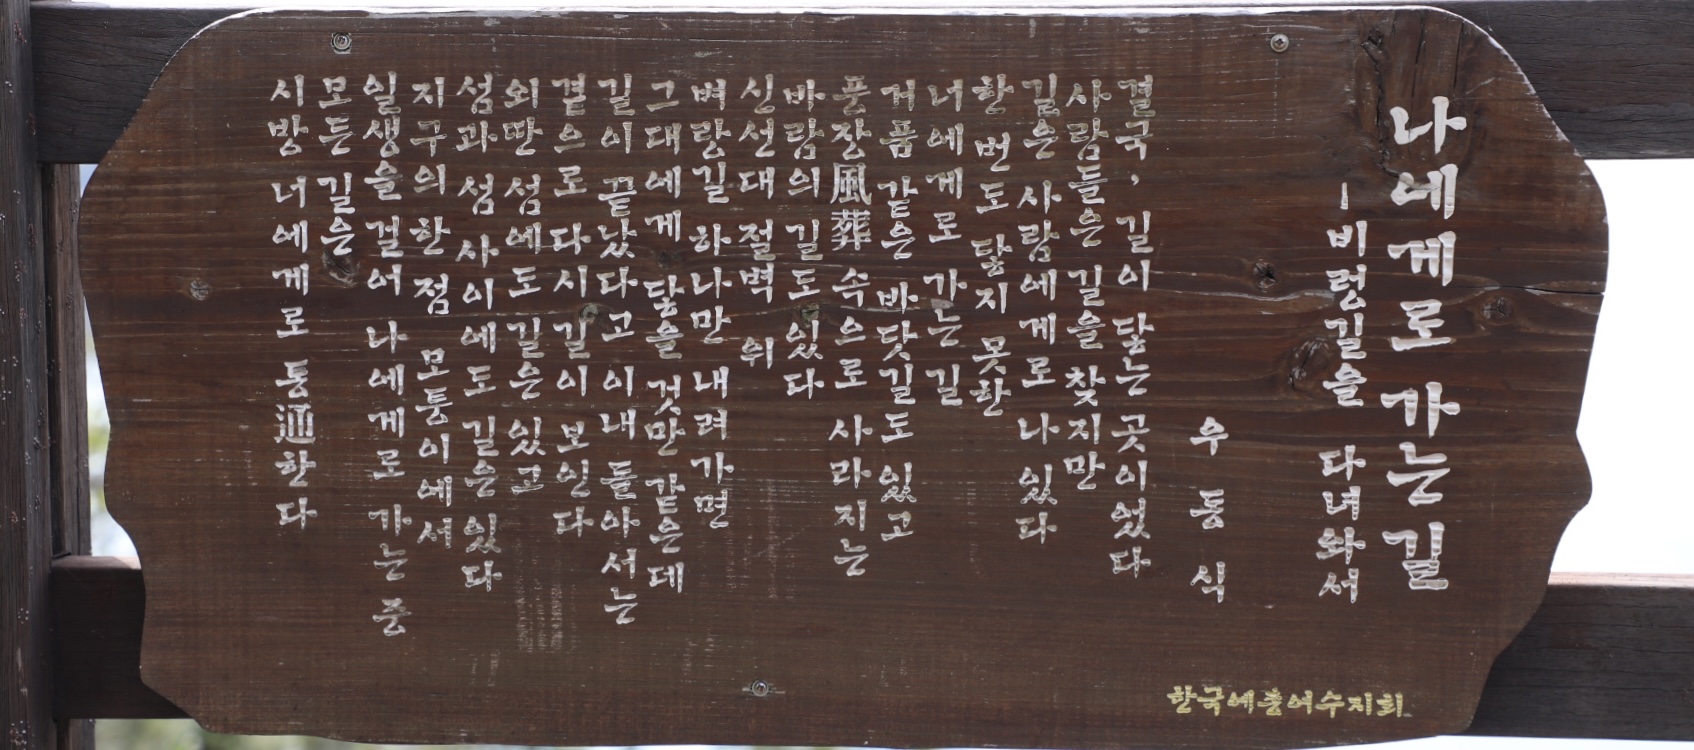 나에게로 가는 길
ㅣ비렁길을 다녀와서
우 동 식
결국, 길이 닿는 곳이었다
사람들은 길을 찾지만
길은 사람에게로 나 있다
한 번도 닿지 못한
너에게로 가는 길
거품 같은 바닷길도 있고
풍장風葬 속으로 사라지는
바람의 길도 있다
신선대 절벽 위
벼랑길 하나만 내려가면
그대에게 닿을 것만 같은데
길이 끝났다고 이내 돌아서는
곁으로 다시 길이 보인다
외딴 섬에도 길은 있고
섬과 섬 사이에도 길은 있다
지구의 한 점 모퉁이에서
일생을 걸어 나에게로 가는 중
모든 길은
시방 너에게로 통通한다
한국예총여수지회